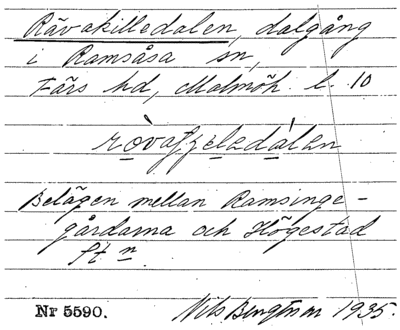 Rävakilledalen, dalgång
i Ramsåsa sn,
Färs hd, Malmöh. l. 10
Belägen mellan Ramsinge-
gårdarna och Högestad
st n.
Nr 5590. Nils Bengtson 1935.